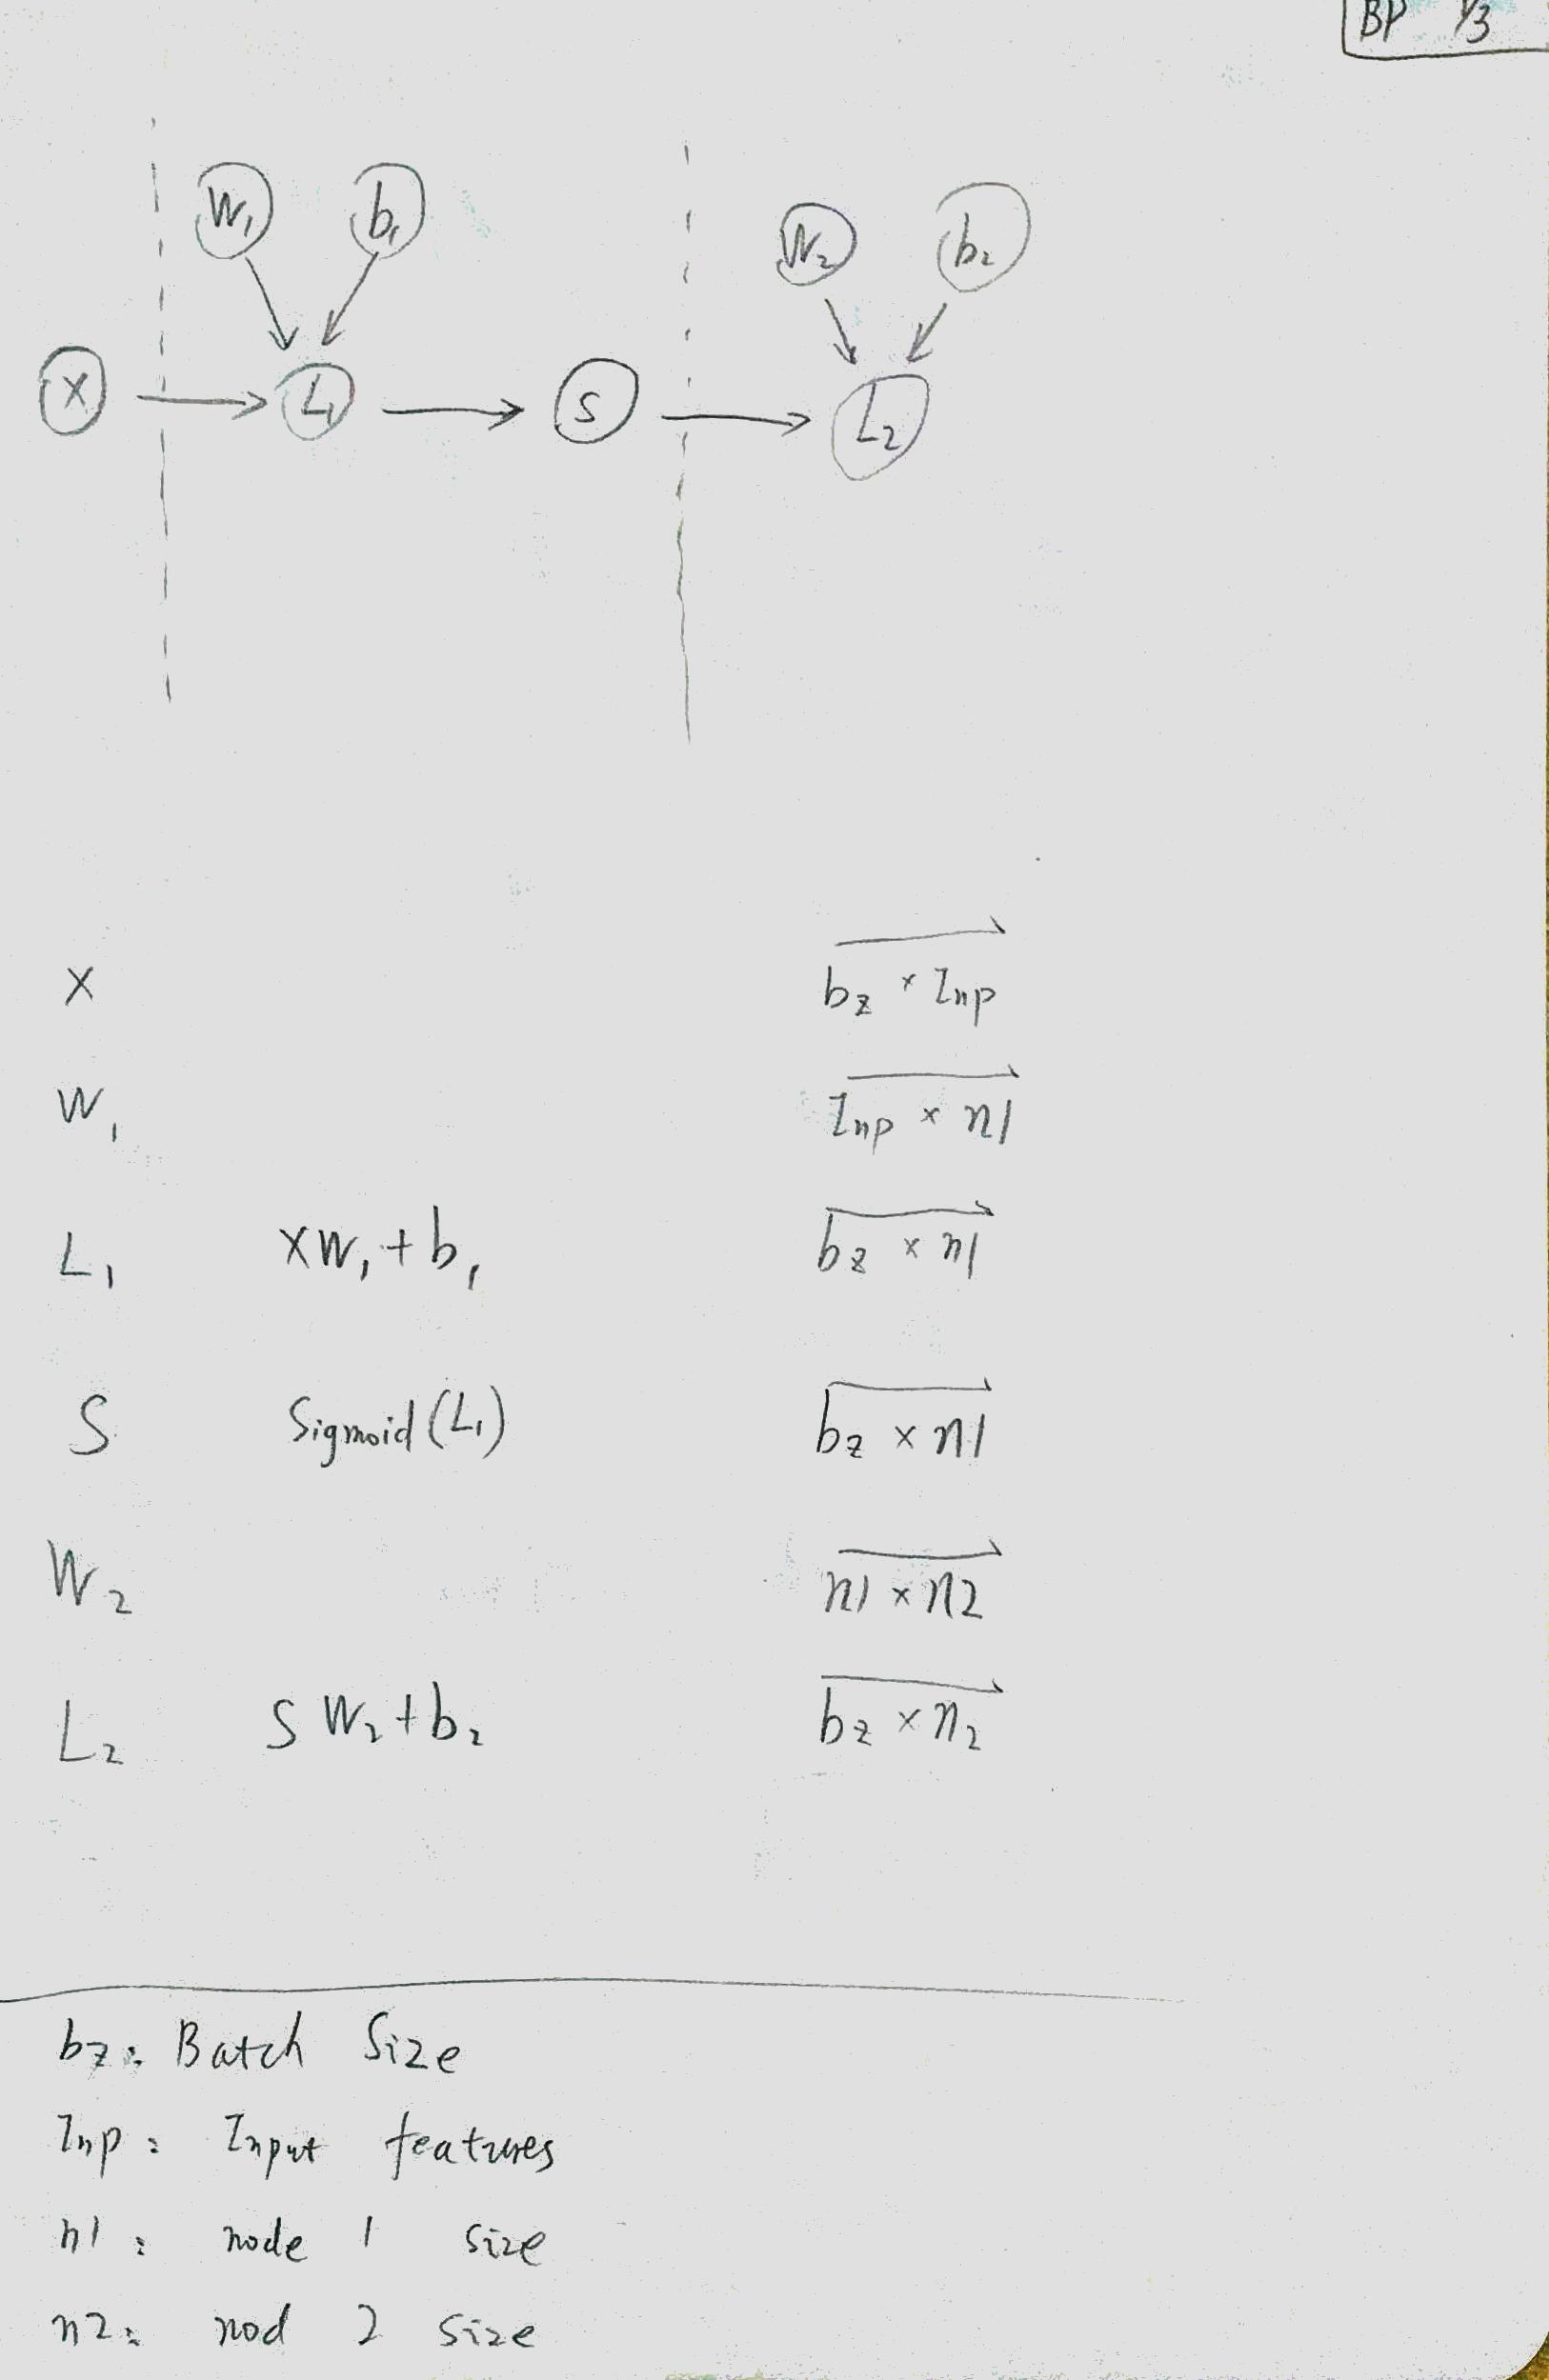 BP 1/3
W₁ b₁ W₂ b₂
X L₁ S L₂
X bz × Inp
W₁ Inp × n1
L₁ XW₁ + b₁ bz × n1
S Sigmoid (L₁) bz × n1
W₂ n1 × n2
L₂ S W₂ + b₂ bz × n₂
bz: Batch Size
Inp: Input features
n1: node 1 size
n2: nod 2 size